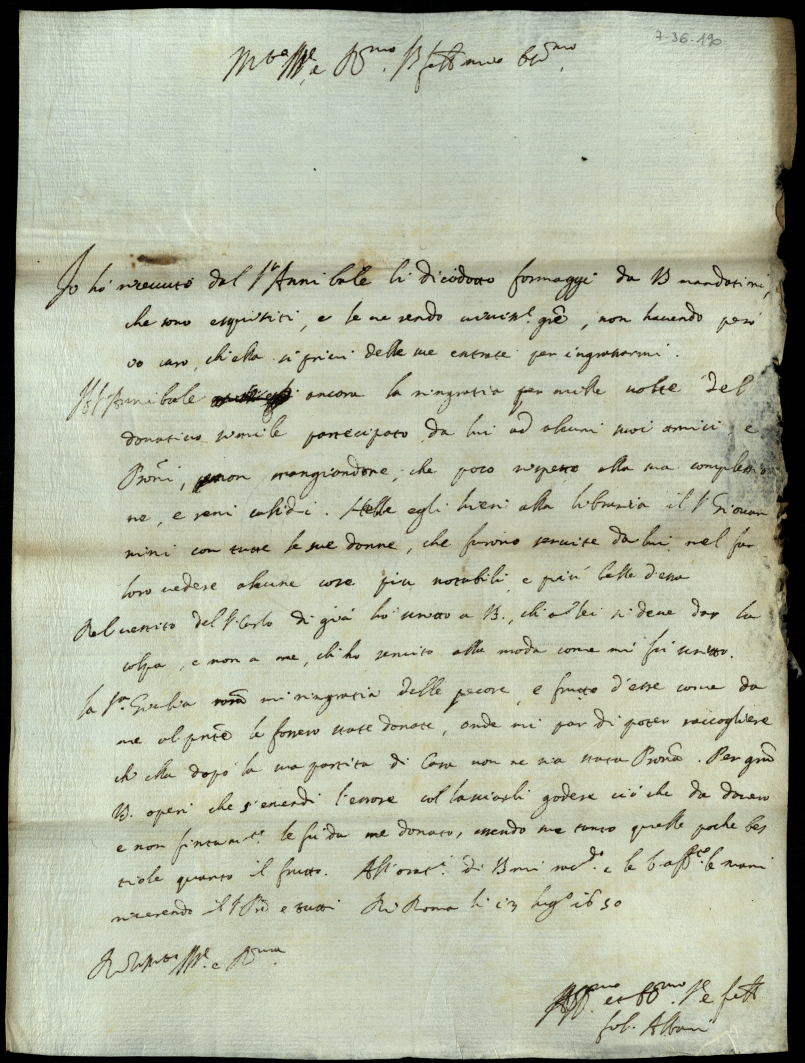 7-36-190
Molto Ill.re e R.mo S.r fratello mio oss.mo
Io hò riceuuto dal S.r Annibale li dicidotto formaggi da VS mandatimi,
che sono esquisiti, e le ne rendo viuiss.e grê, non hauendo però
io caro, ch'ella si priui delle sue entrate per ingrassarmi.
Il S.r Annibale ancora la ringratia per mille uolte del
donatiuo simile partecipato da lui ad alcuni suoi amici e
Pròni, non mangiandone, che poco rispetto alla sua complessio
ne, e reni calidi. Hebbe egli hieri alla libraria il S.r Giouan
nini con tutte le sue donne, che furono seruite da lui nel far
loro uedere alcune cose più notabili, e più belle d'essa
Nel uestito del S.r Carlo di già hò scritto a VS., ch'a lei si deue dar la
colpa, e non a me, ch'hò seruito alla moda come mi fù scritto.
La S.ra Giulia mi ringratia delle pecore, e frutto d'esse come da
me al pñte le fossero state donate, onde mi par di poter raccogliere
ch'ella dopò la sua partita di Casa non ne sia stata Pròna. Per grã
VS. operi che s'emendi l'errore col lasciarli godere ciò che da douero
e non fintam.te le fù da me donato, essendo sue tanto quelle poche bes
tiole quanto il frutto. All'orat.i di VS mi racc.do e le b. aff.te le mani
riuerendo il S.r Prê e tutti Di Roma li 13 lug.o 1650
Di VS molto Ill.re e R.ma
Aff.mo et obb.mo S.re e fratello
Albani